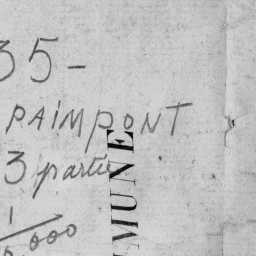 35-
PAIMPONT
3 partie
1
000
MUNE